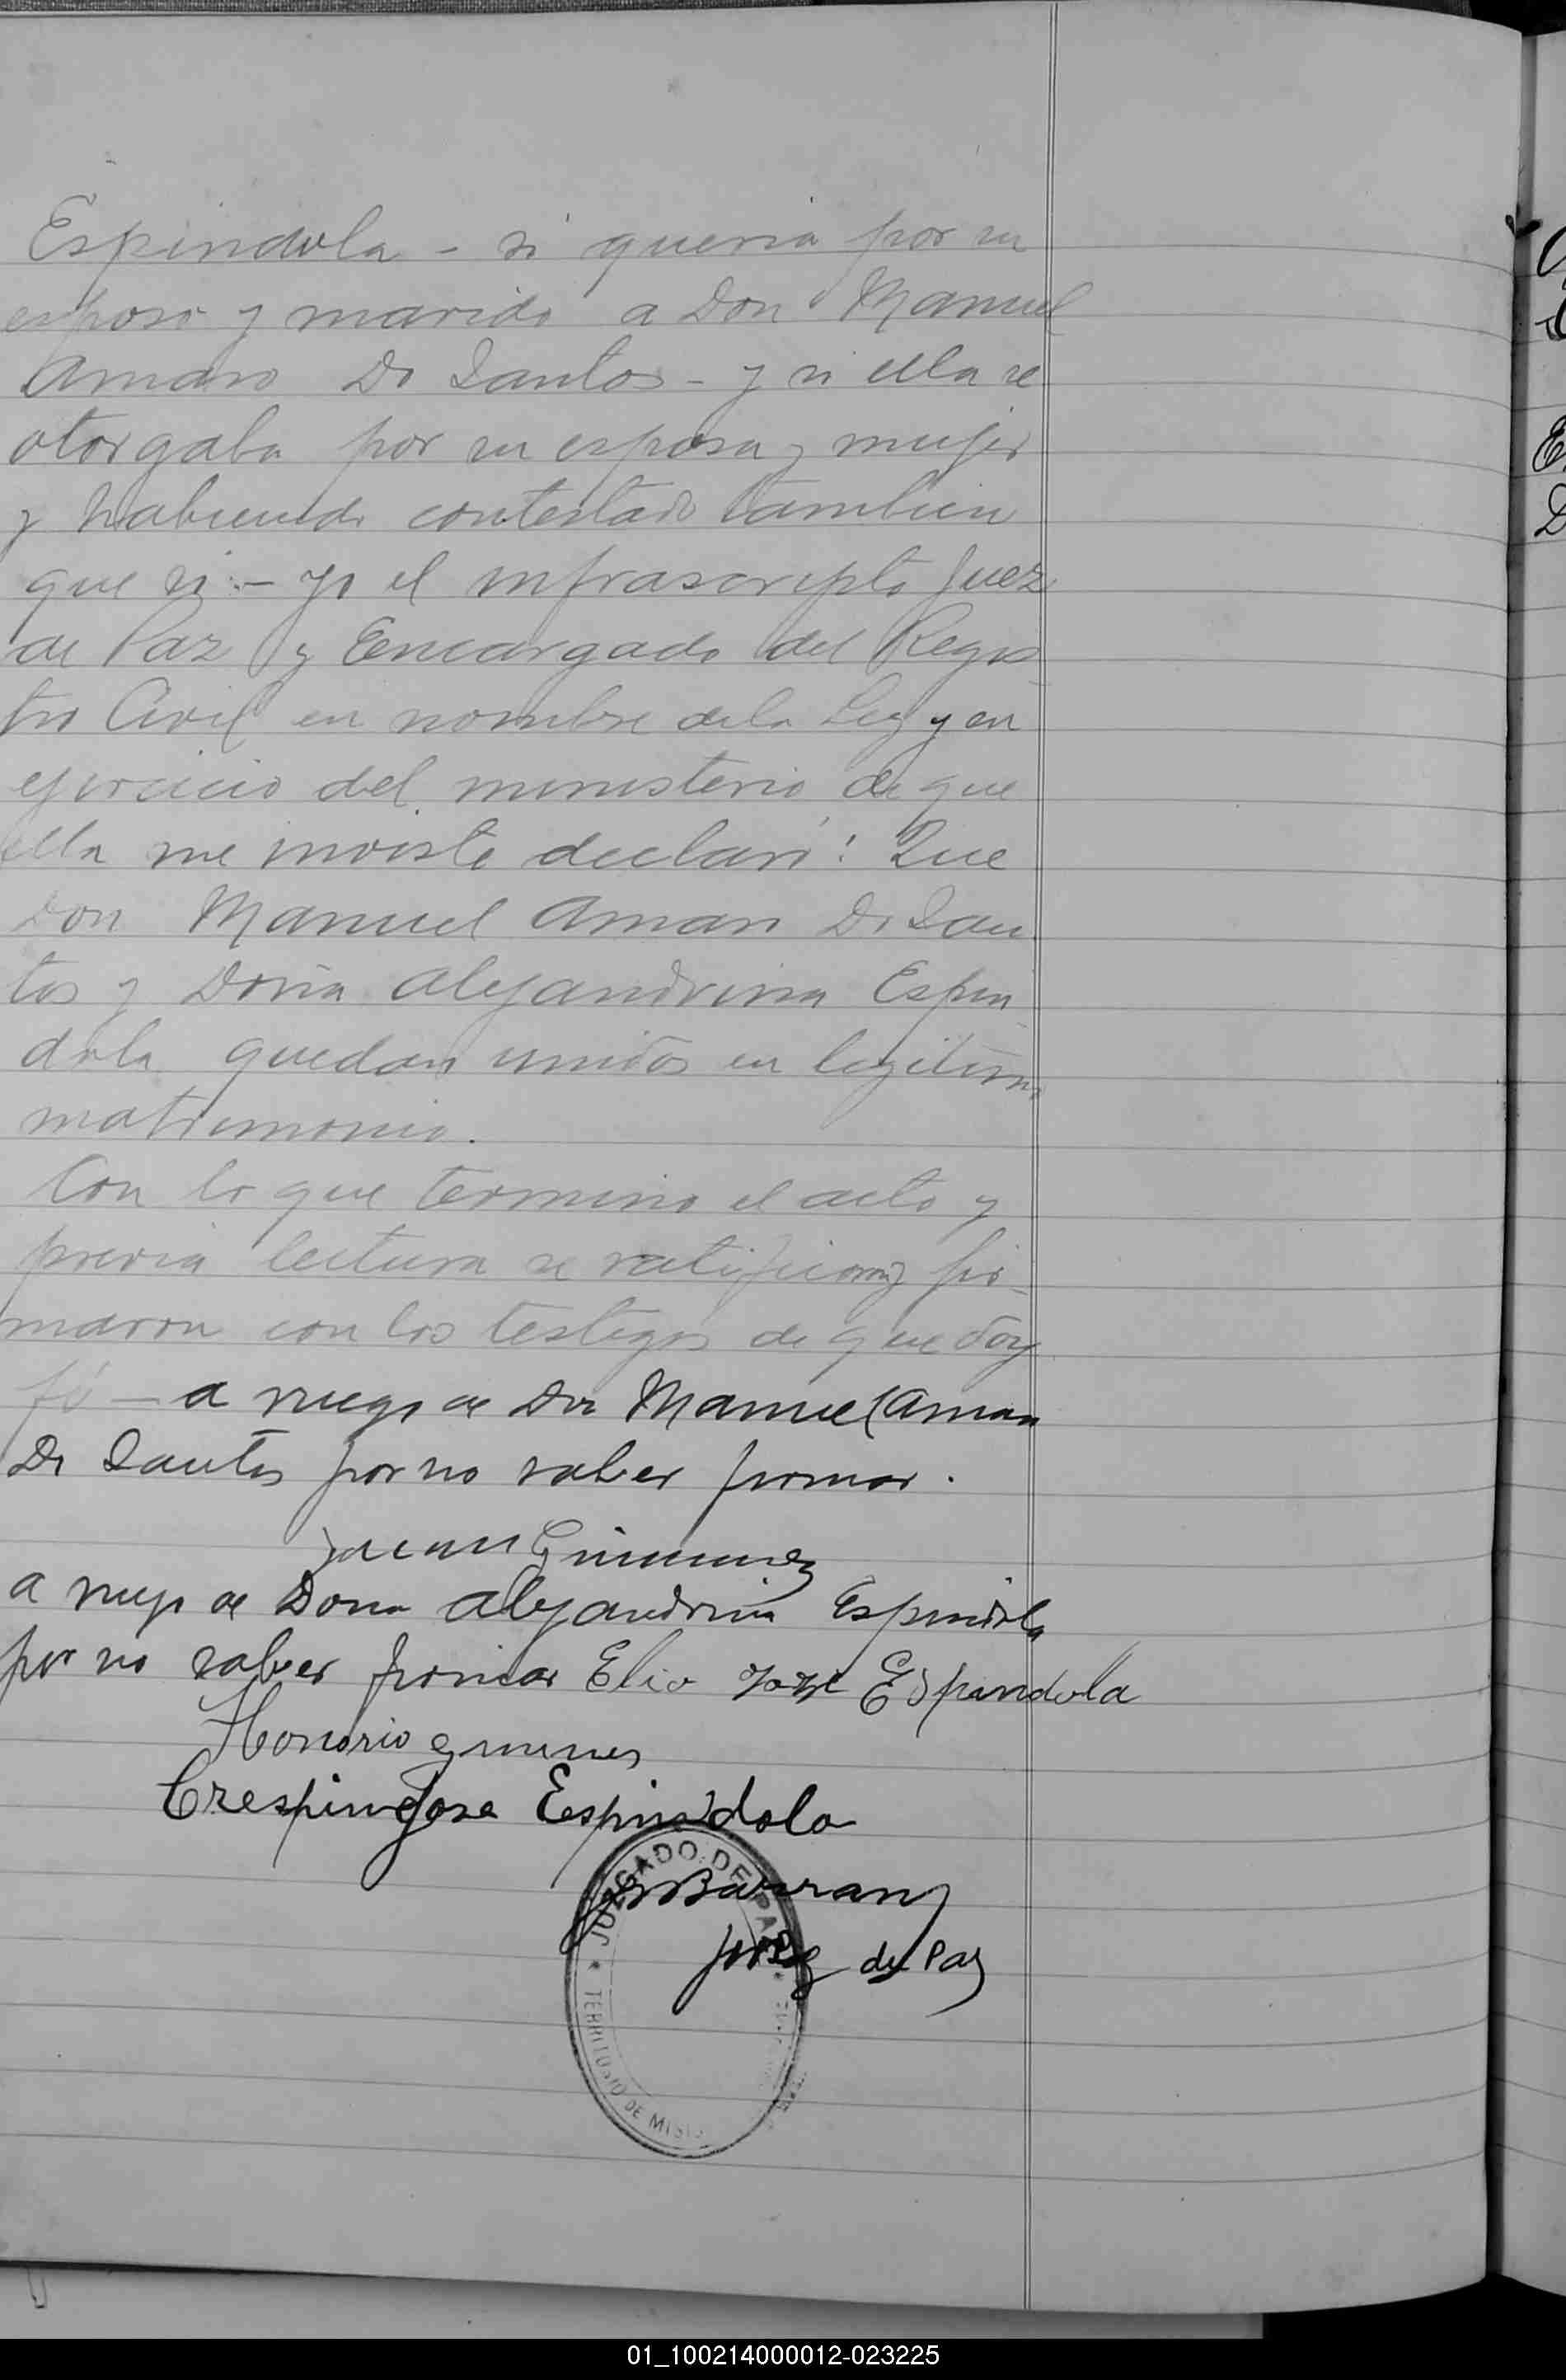 Espindola - si queria por su
esposo y marido a Don Manuel
Amaro Do Santos - y si ella se
otorgaba por su esposa y mujer
y habiendo contestado tambien
que si. - Yo el infrascripto Juez
de Paz y Encargado del Regis
tro Civil en nombre de la Ley y en
ejercicio del ministerio de que
ella me inviste declaró: Que
Don Manuel Amaro Do San
tos y Doña Alejandrina Espin
dola quedan unidos en legitimo
matrimonio.
Con lo que termino el acto y
previa lectura se ratifican y fir-
maron con los testigos de que doy
fé - a ruego de Don Manuel Amaro
Do Santos por no saber firmar.
Juan Gimenez
a ruego de Dona Alejandrina Espindola
por no saber firmar Elio José Espindola
Honorio
Crespin Jose Espindola
Barran
Juez de Paz
JUZGADO DE PAZ
TERRITORIO DE MISIO
01_100214000012-023225